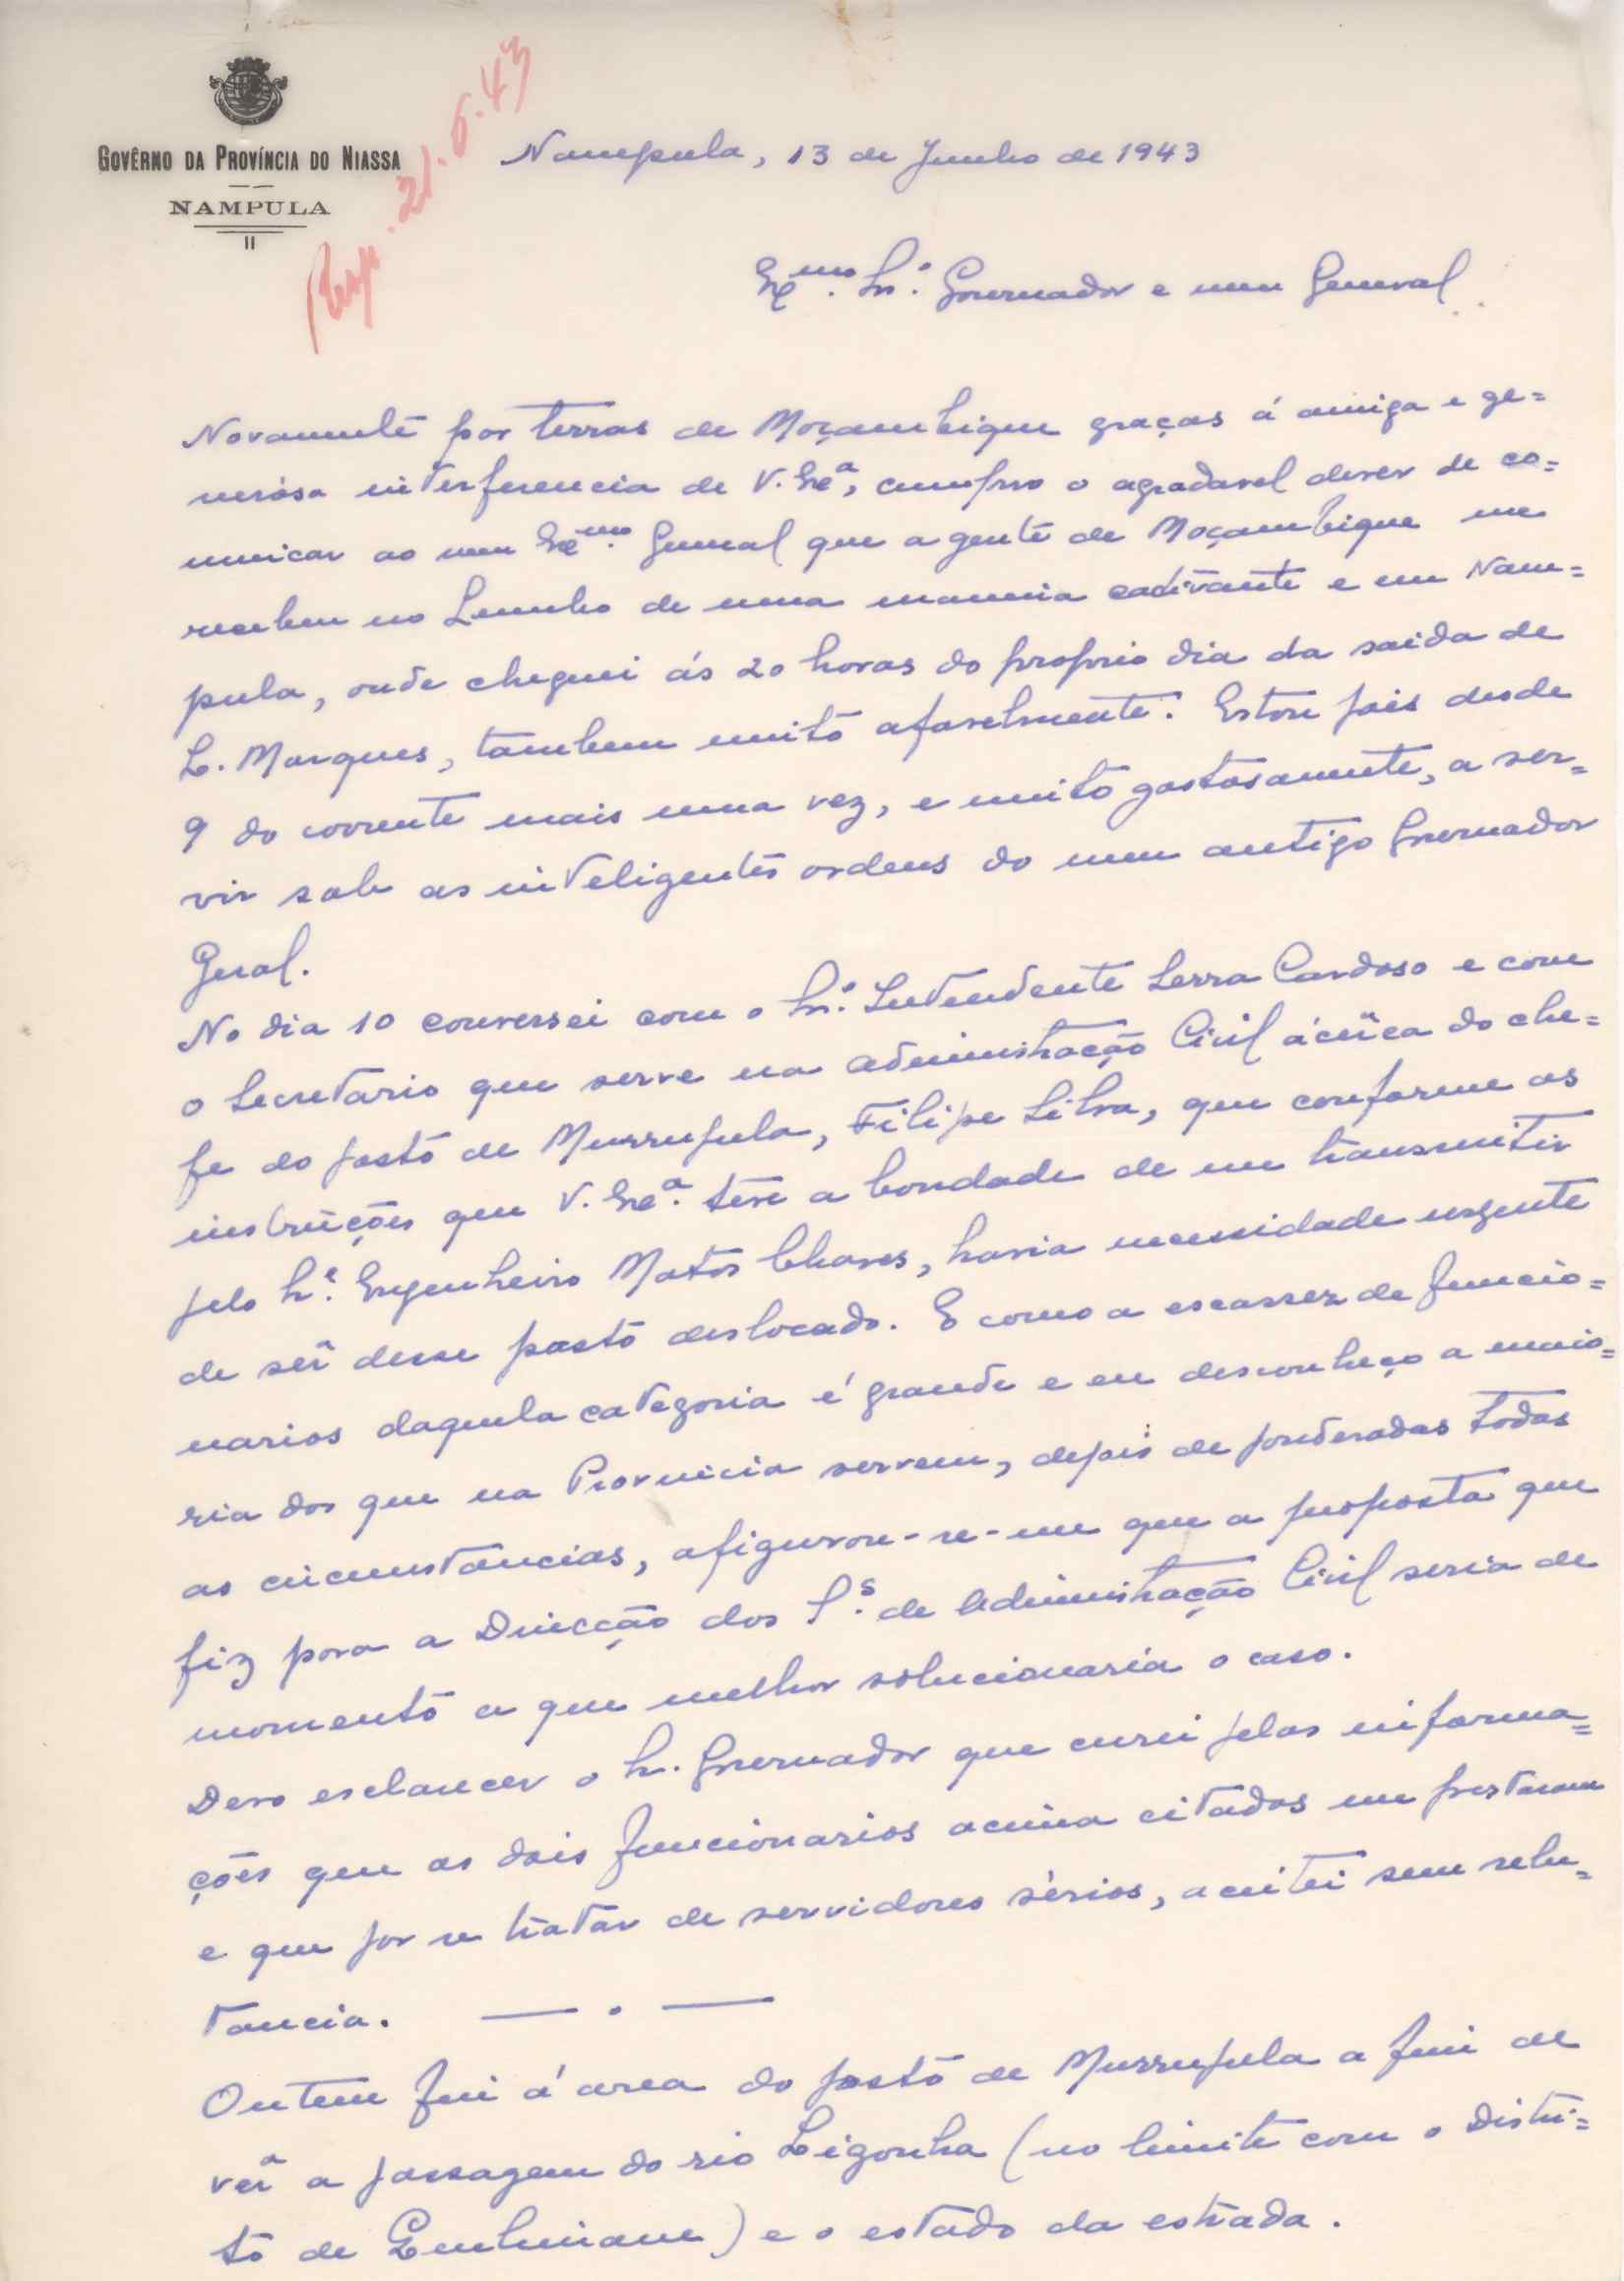 GOVÊRNO DA PROVÍNCIA DO NIASSA
NAMPULA
Resp. 21.6.43
Nampula, 13 de Junho de 1943
Exmo. Sr. Governador e meu General
Novamente por terras de Moçambique graças á amiga e ge=
nerosa interferencia de V. Exª, cumpro o agradavel dever de co=
municar ao meu Exmo. General que a gente de Moçambique me
recebeu no Lumbo de uma maneira cativante e em Nam=
pula, onde cheguei ás 20 horas do proprio dia da saida de
L. Marques, tambem muito afavelmente. Estou pois desde
9 do corrente mais uma vez, e muito gostosamente, a ser=
vir sob as inteligentes ordens do meu antigo Governador
Geral.
No dia 10 conversei com o Sr. Intendente Serra Cardoso e com
o Secretario que serve na Administração Civil ácêrca do che=
fe do posto de Murrupula, Filipe Silva, que conforme as
instruções que V. Exª. teve a bondade de me transmitir
pelo Sr. Engenheiro Matos Chaves, havia necessidade urgente
de sêr desse posto deslocado. E como a escassez de funcio=
narios daquela categoria é grande e eu desconheço a maio=
ria dos que na Provincia servem, depois de ponderadas todas
as circunstancias, afigurou-se-me que a proposta que
fiz para a Direcção dos S.s de Administração Civil seria de
momento a que melhor solucionaria o caso.
Devo esclarecer o Sr. Governador que curei pelas informa=
ções que os dois funcionarios acima citados me prestaram
e que por se tratar de servidores sérios, aceitei sem relu=
tancia. — . —
Ontem fui á area do posto de Murrupula a fim de
vêr a passagem do rio Ligonha (no limite com o Distri=
to de Quelimane) e o estado da estrada.